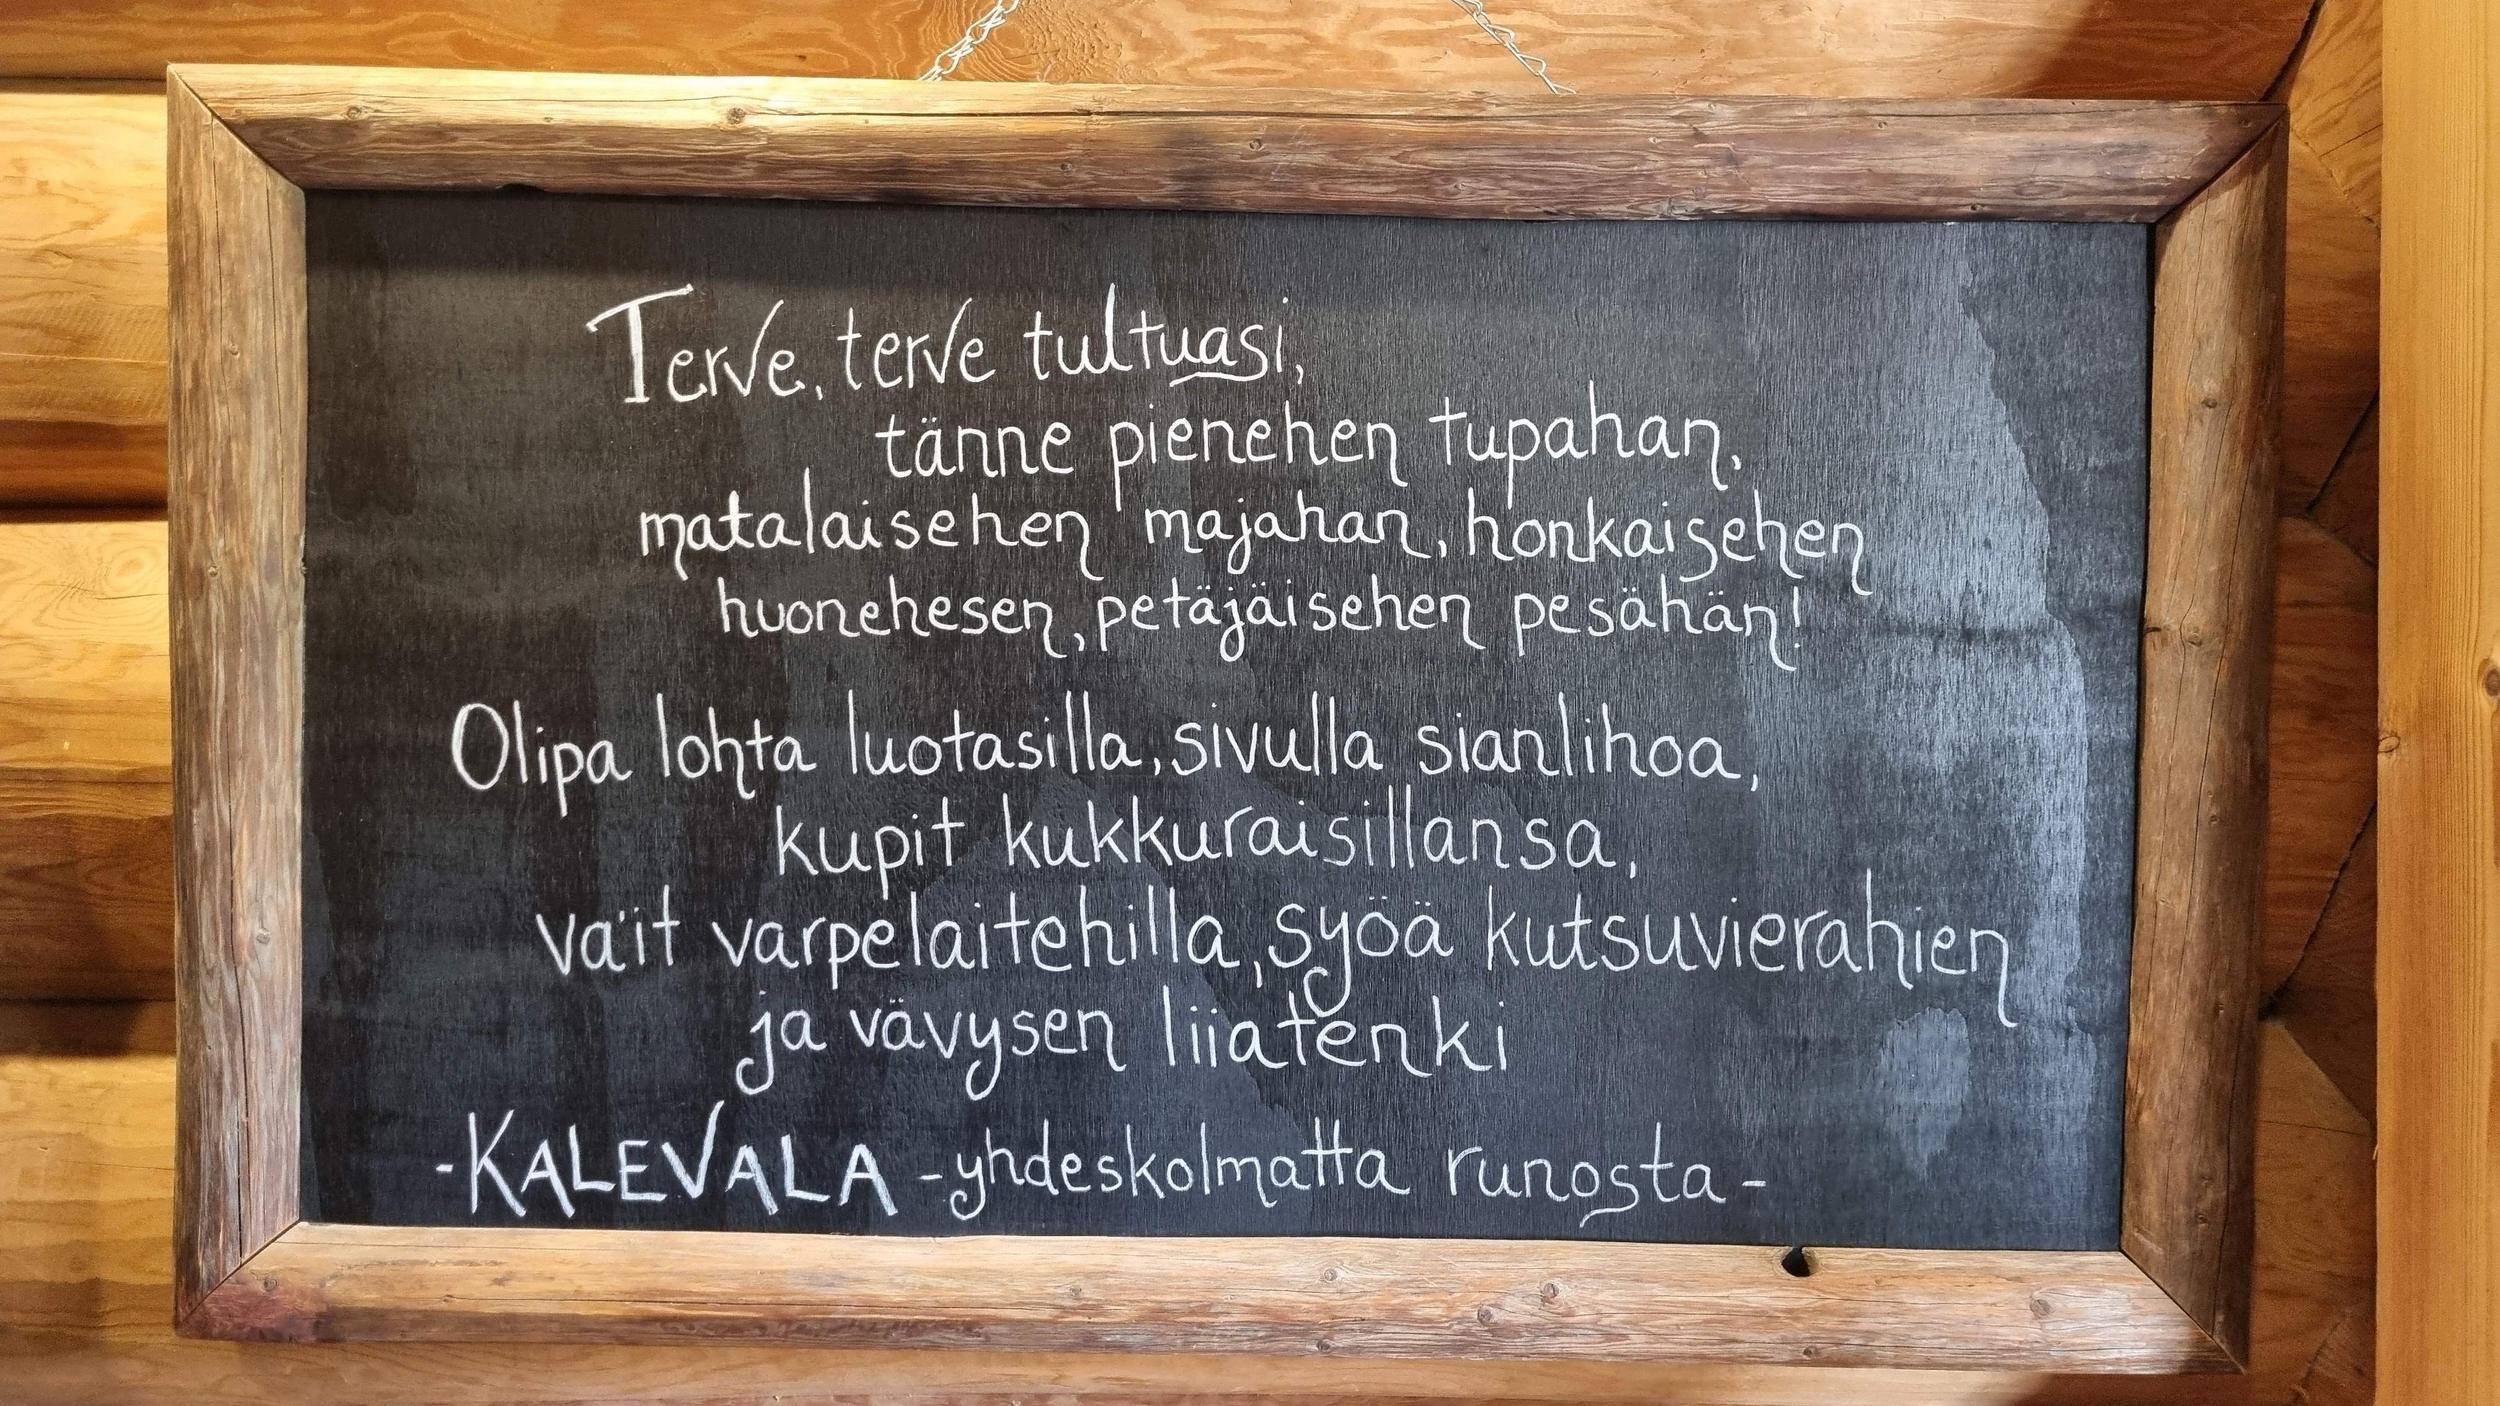 Terve, terve tultuasi,
tänne pienehen tupahan,
matalaisehen majahan, honkaisehen
huonehesen, petäjäisehen pesähän!
Olipa lohta luotasilla, sivulla sianlihoa,
kupit kukkuraisillansa,
vait varpelaitehilla, syöä kutsuvierahien
ja vävysen liiatenki
-KALEVALA -yhdeskolmatta runosta-